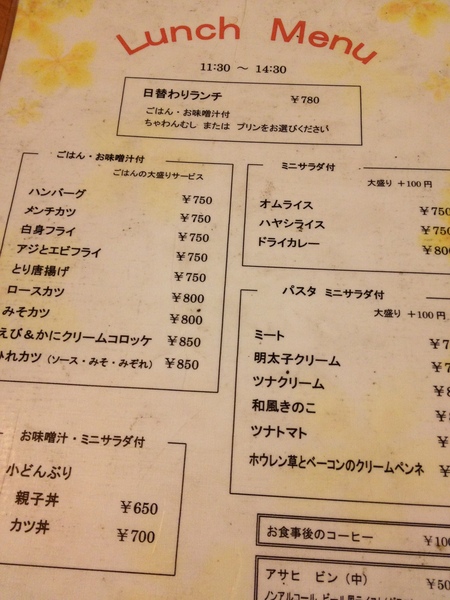 Lunch Menu
11:30 ～ 14:30
日替わりランチ ￥780
ごはん・お味噌汁付
ちゃわんむし または プリンをお選びください
ごはん・お味噌汁付
ごはんの大盛りサービス
ハンバーグ ￥750
メンチカツ ￥750
白身フライ ￥750
アジとエビフライ ￥750
とり唐揚げ ￥750
ロースカツ ￥800
みそカツ ￥800
えび＆かにクリームコロッケ ￥850
ひれカツ（ソース・みそ・みぞれ） ￥850
お味噌汁・ミニサラダ付
小どんぶり
親子丼 ￥650
カツ丼 ￥700
ミニサラダ付
大盛り ＋100円
オムライス ￥750
ハヤシライス ￥750
ドライカレー ￥800
パスタ ミニサラダ付
大盛り ＋100円
ミート ￥
明太子クリーム ￥
ツナクリーム ￥
和風きのこ ￥
ツナトマト ￥
ホウレン草とベーコンのクリームペンネ ￥
お食事後のコーヒー ￥100
アサヒ ビン（中） ￥50
ノンアルコール ビール